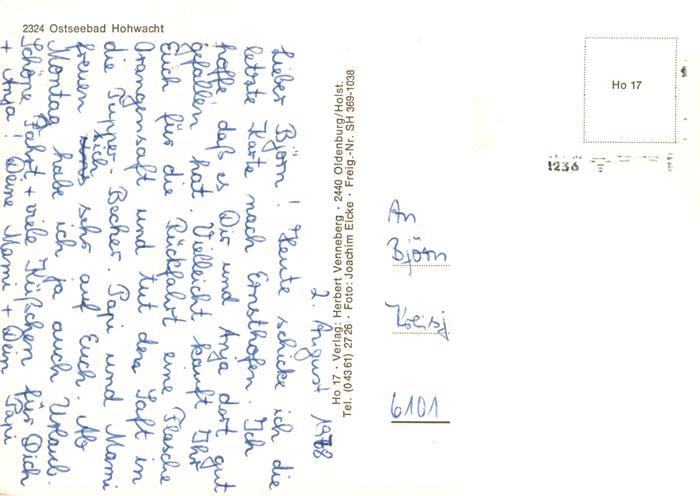 2324 Ostseebad Hohwacht
2. August 1978
Lieber Björn! Heute schicke ich die
letzte Karte nach Ernsthofen. Ich
hoffe, daß es Dir und Anja dort gut
gefallen hat. Vielleicht kauft Ihr
Euch für die Rückfahrt eine Flasche
Orangensaft und tut den Saft in
die Tupper-Becher. Papi und Mami
freuen sich sehr auf Euch. Ab
Montag habe ich ja auch Urlaub.
Schöne Fahrt + viele Küßchen für Dich
+ Anja! Deine Mami + Dein Papi
Ho 17 · Verlag: Herbert Venneberg · 2440 Oldenburg/Holst.
Tel. (04361) 2726 · Foto: Joachim Eicke · Freig.-Nr. SH 369-1038
Ho 17
1236
An
Björn
6101